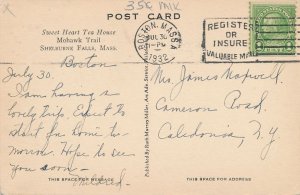 35¢
POST CARD
Sweet Heart Tea House
Mohawk Trail
SHELBURNE FALLS, MASS.
BOSTON, MASS.
JUL 30
1932
REGISTER
OR
INSURE
VALUABLE MAIL
Boston
July 30.
I am having a
lovely trip. Expect to
start for home to-
morrow. Hope to see
you soon -
Mildred.
Mrs. James Maxwell.
Cameron Road,
Caledonia, N.Y
THIS SPACE FOR MESSAGE
THIS SPACE FOR ADDRESS